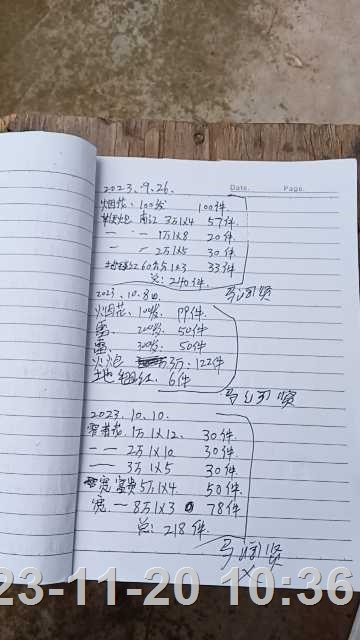 2023.9.26.
Date.
Page.
烟花、100发 100件
南江 3万1X4 57件
— — 1万1X8 20件
— — 2万1X5 30件
33件
总: 240件
2023.10.8日
火烟花、100发. 99件
雷、 200发. 50件
雷、 300发. 50件
火炮 3万: 122件
地组红. 6件
2023.10.10.
1万1X12、 30件
— — 2万1X10 30件
—— 3万1X5 30件
宽 富贵 5万1X4 50件
宽 — 8万1X3 78件
总: 218件
23-11-20 10:36